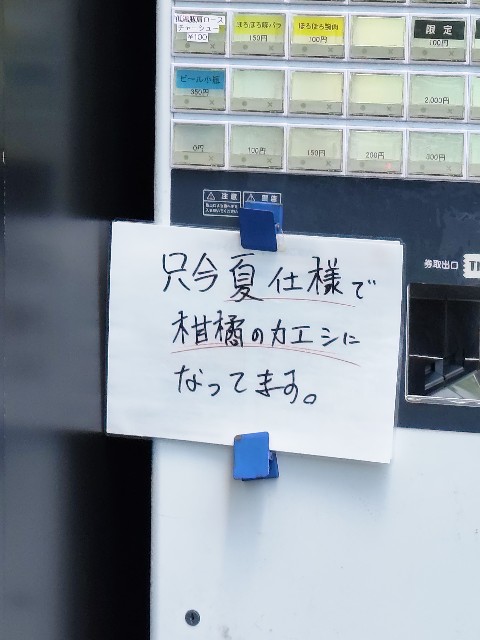 低温豚肩ロース
チャーシュー
¥100
ほろほろ豚バラ
150円
ほろほろ鶏肉
100円
限定
100円
ビール小瓶
350円
2,000円
0円
100円
150円
200円
300円
注意
注意
券取出口
只今夏仕様で
柑橘のカエシに
なってます。